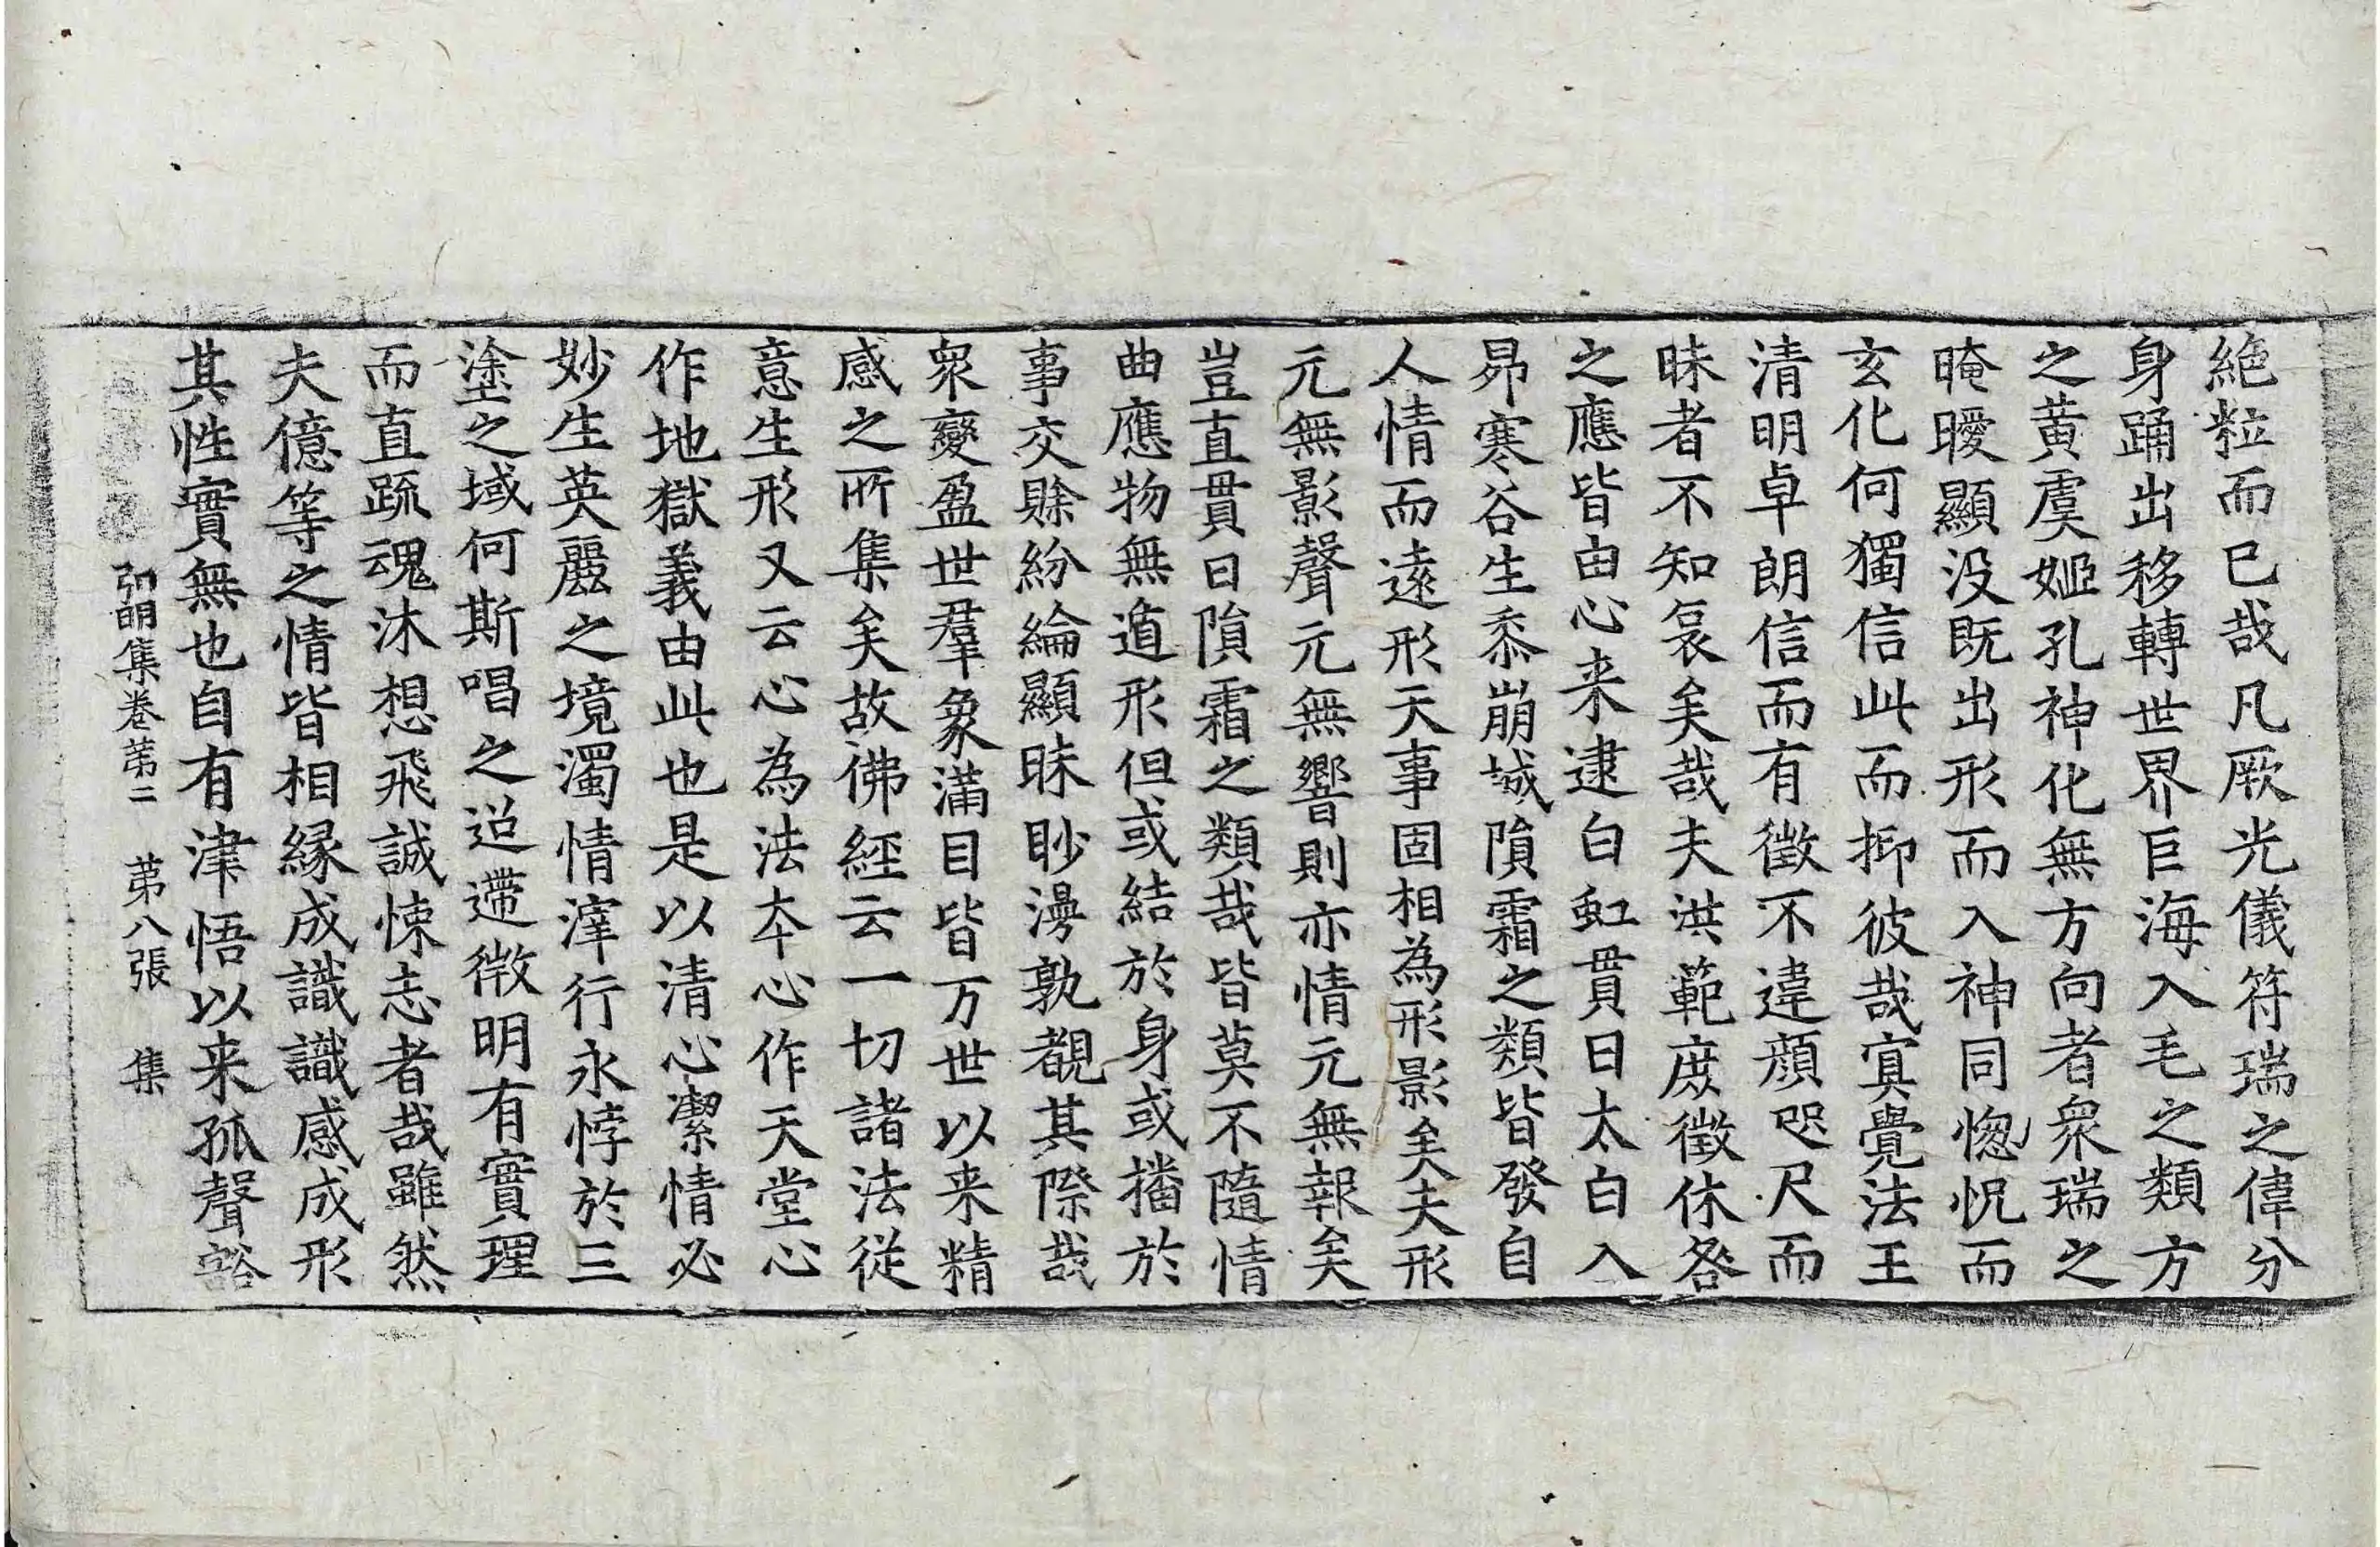 絶粒而已哉凡厥光儀符瑞之偉分
身踊出移轉世界巨海入毛之類方
之黄虞姬孔神化無方向者衆瑞之
晻曖顯没既出形而入神同惚怳而
玄化何獨信此而抑彼哉寘覺法王
清明卓朗信而有徵不違顔咫尺而
昧者不知哀矣哉夫洪範庶徵休咎
之應皆由心来逮白虹貫日太白入
昴寒谷生黍崩城隕霜之類皆發自
人情而遠形天事固相為形影矣夫形
元無影聲元無響則亦情元無報矣
豈直貫日隕霜之類哉皆莫不隨情
曲應物無遁形但或結於身或播於
事交賖紛綸顯昧眇漫孰覩其際哉
衆變盈世羣象滿目皆万世以来精
感之所集矣故佛經云一切諸法從
意生形又云心為法夲心作天堂心
作地獄義由此也是以清心潔情必
妙生英麗之境濁情滓行永悖於三
塗之域何斯唱之迢遰微明有實理
而直疏魂沐想飛誠悚志者哉雖然
夫億等之情皆相縁成識識感成形
其性實無也自有津悟以来孤聲豁
弘明集卷苐二　苐八張　集